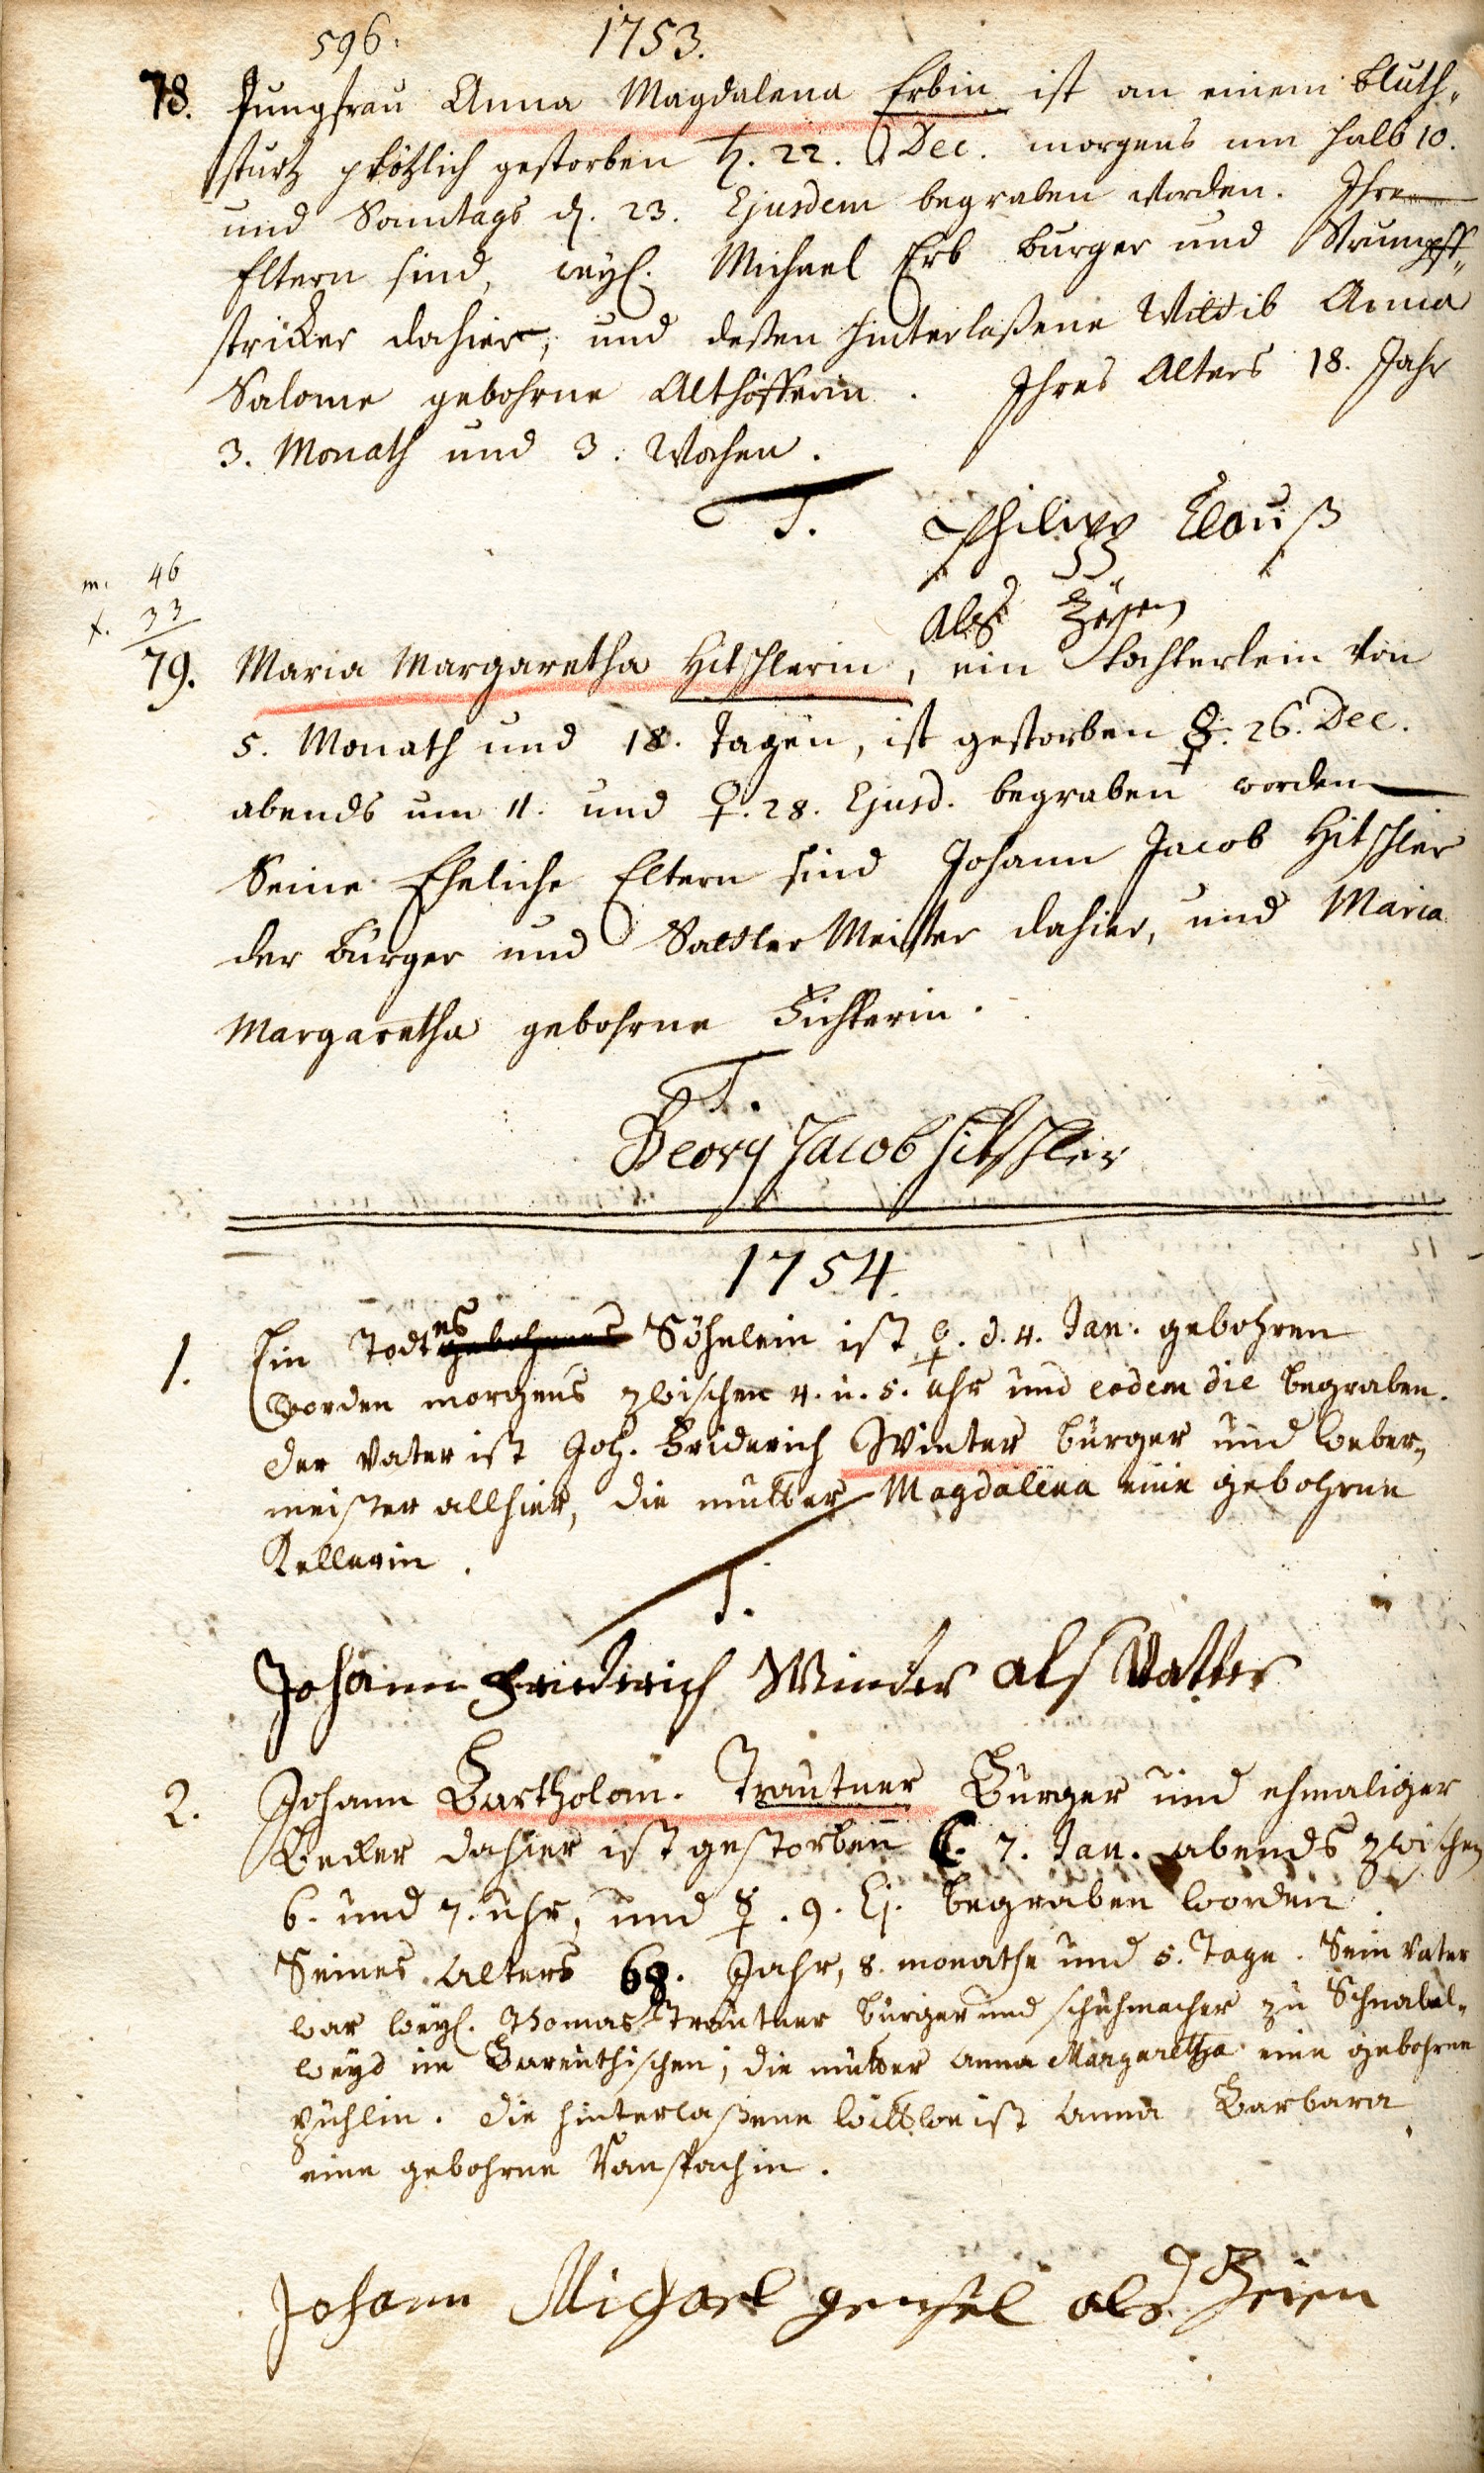 596. 1753.
78. Jungfrau Anna Magdalena Erbin ist an einem Bluth-
sturtz plötzlich gestorben ♄. 22. Dec. morgens um halb 10.
und Sonntags d. 23. Ejusdem begraben worden. Ihre
Eltern sind, weyl. Michael Erb Burger und Strumpff-
stricker dahier, und deßen hinterlaßene Wittib Anna
Salome gebohrne Althöfferin. Ihres Alters 18. Jahr
3. Monath und 3. Wochen.
T. Philipp Clauß
als Zeügen
m. 46
f. 33
79. Maria Margaretha Hitschlerin, ein Töchterlein von
5. Monath und 18. Tagen, ist gestorben ☿. 26. Dec.
abends um 11. und ♀. 28. Ejusd. begraben worden
Seine Eheliche Eltern sind Johann Jacob Hitschler
der Burger und Sattler Meister dahier, und Maria
Margaretha gebohrne Fichterin.
T.
Georg Jacob Hitschler
1754.
1. Ein Todtes Söhnlein ist ♀. d. 4. Jan. gebohren
worden morgens zwischen 4. u. 5. Uhr und eodem die begraben.
der Vater ist Joh. Friderich Winter burger und Weber-
meister allhier, die mutter Magdalena eine gebohrne
Kellerin.
T.
Johann Friederich Winder als Vatter
2. Johann Bartholom. Trautner Burger und ehmaliger
Becker dahier ist gestorben ☾. 7. Jan. abends zwischen
6. und 7. uhr, und ☿. 9. Ej. begraben worden.
Seines Alters 68. Jahr, 8. monathe und 5. Tage. Sein Vater
war weyl. Thomas Trautner burger und schuhmacher zu Schnabel-
weyd im Bareuthischen; die mutter Anna Margaretha eine gebohrne
. die hinterlaßene Wittwe ist Anna Barbara
eine gebohrne .
Johann Michael als